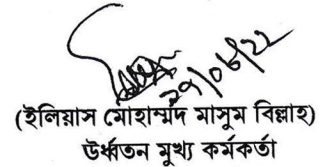 ২৭/০৬/২২
(ইলিয়াস মোহাম্মদ মাসুম বিল্লাহ)
উর্ধ্বতন মুখ্য কর্মকর্তা